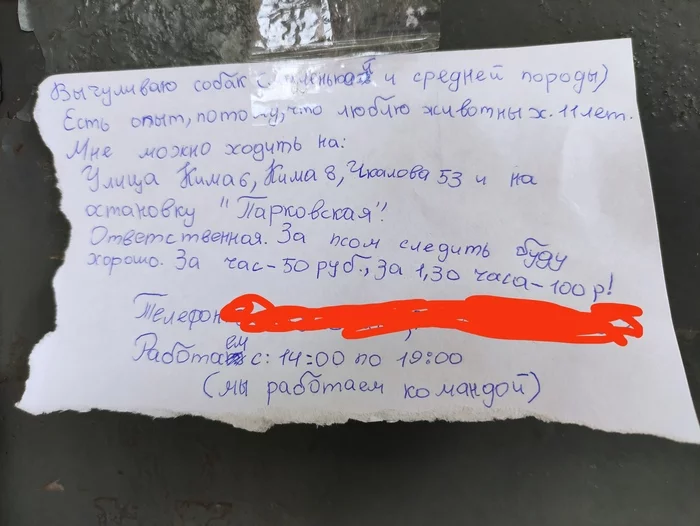 Вычуливаю собак (маленькой и средней породы)
Есть опыт, потому, что люблю животных. 11 лет.
Мне можно ходить на:
Улица Кима 6, Кима 8, Чкалова 53 и на
остановку "Парковская"!
Ответственная. За псом следить буду
хорошо. За час-50 руб., за 1,30 часа-100 р!
Телефон
Работаем с: 14:00 по 19:00
(мы работаем командой)